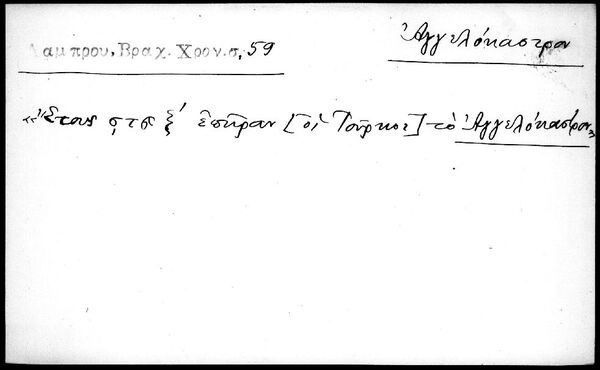 Λαμπρου, Βραχ. Χρον. σ, 59
Ἀγγελόκαστρον
«Ἔτους ϛτπ ξ' ἐπῆραν [οἱ Τοῦρκοι] τὸ Ἀγγελόκαστρον»